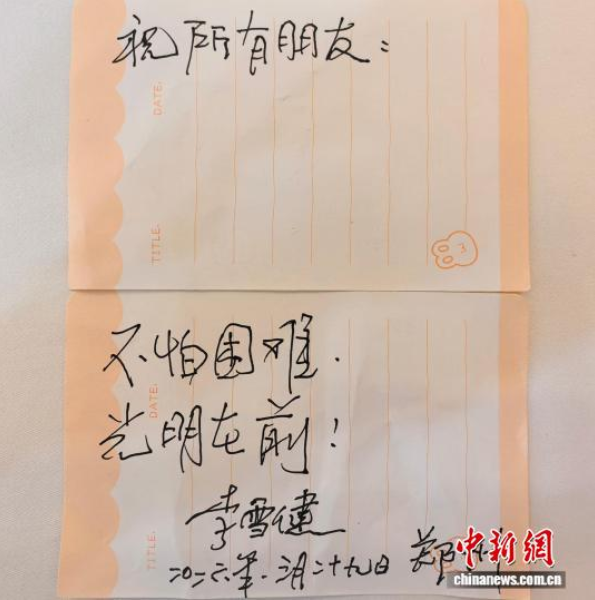 祝所有朋友:
DATE.
TITLE.
不怕困难.
光明在前!
DATE.
TITLE.
李雪健
二〇二六年.三月二十九日
郑
中新网
chinanews.com